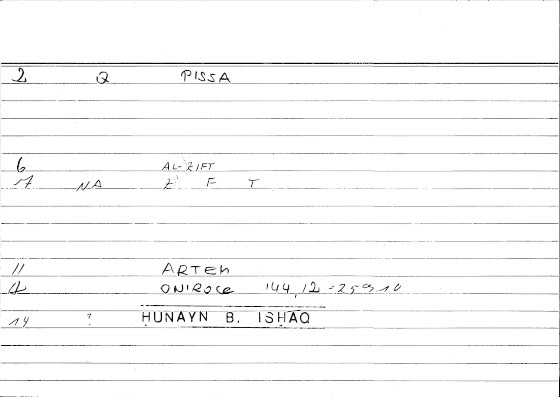 2 Q PISSA
6 AL-ZIFT
17 NA Z F T
11 ARTEM
12 ONIROCR 144,12 = 259,10
14 ? ḤUNAYN B. ISḤĀQ